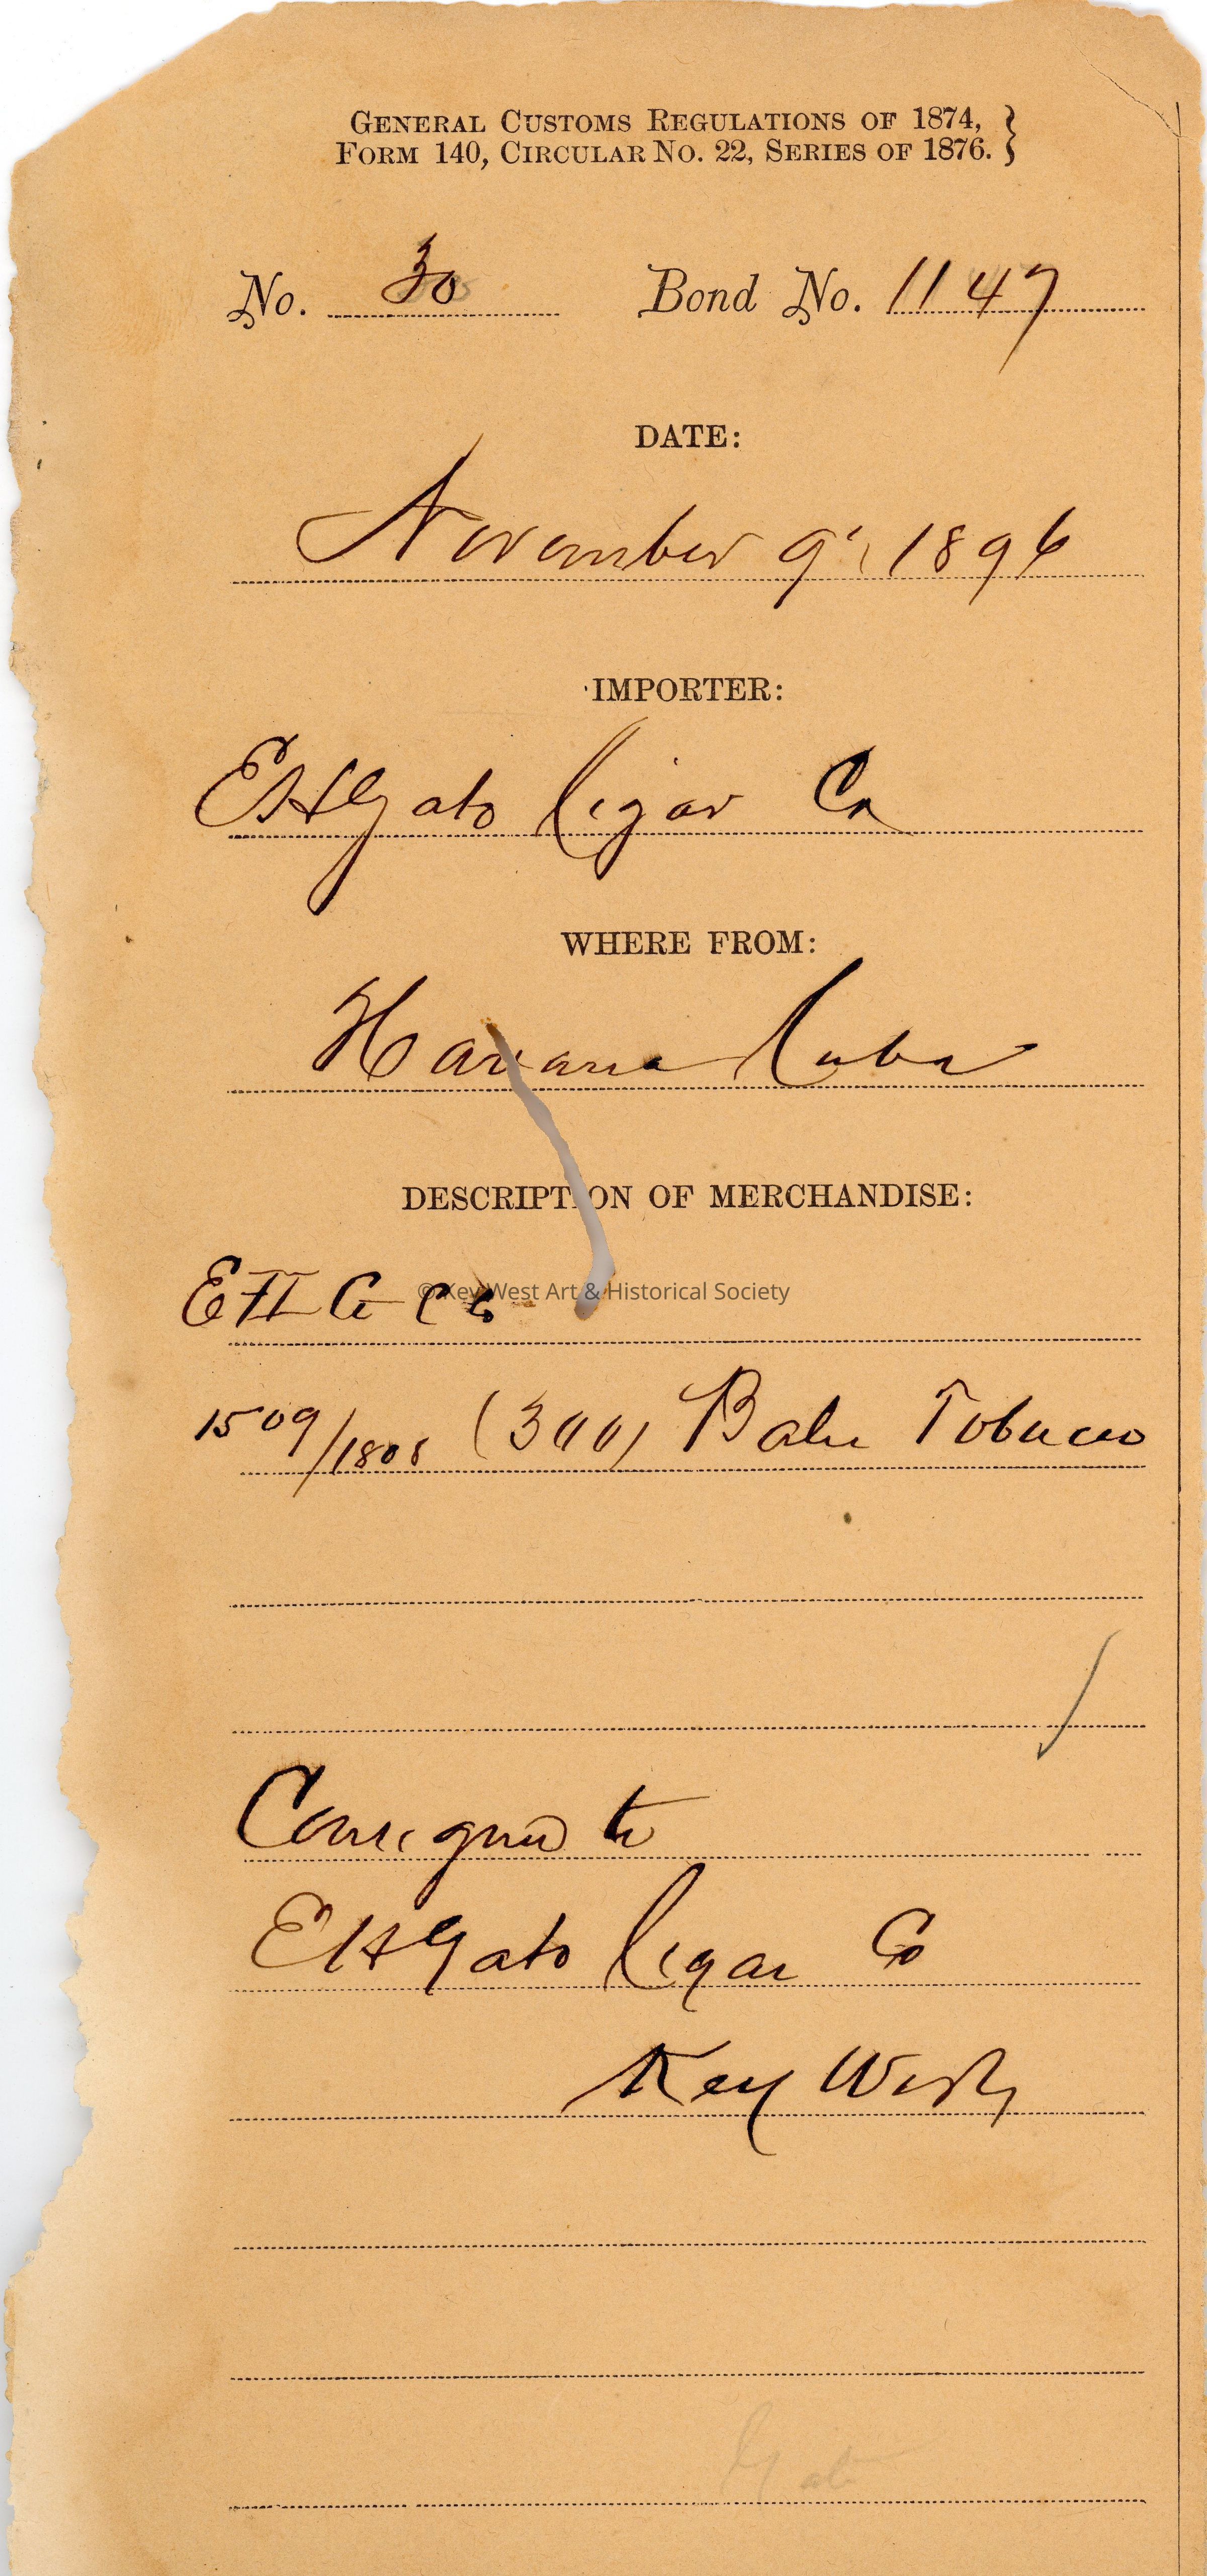 GENERAL CUSTOMS REGULATIONS OF 1874,
FORM 140, CIRCULAR NO. 22, SERIES OF 1876.
No. 30 Bond No. 1147
DATE:
November 9, 1896
IMPORTER:
EHGato Cigar Co
WHERE FROM:
Havana Cuba
DESCRIPTION OF MERCHANDISE:
EHG Co
© Key West Art & Historical Society
1509/1808 (300) Bales Tobacco
Consigned to
EHGato Cigar Co
Key West
Gato